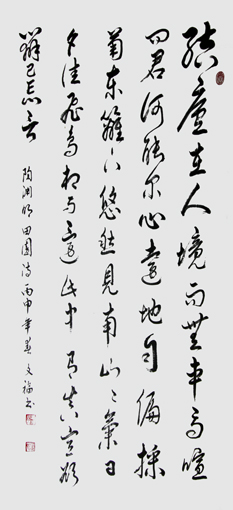 結廬在人境而無車馬喧
問君何能尔心遠地自偏採
菊東籬下悠然見南山〻氣日
夕佳飛鳥相与還此中有真意欲
辨已忘言
陶淵明田園詩丙申年夏文福書